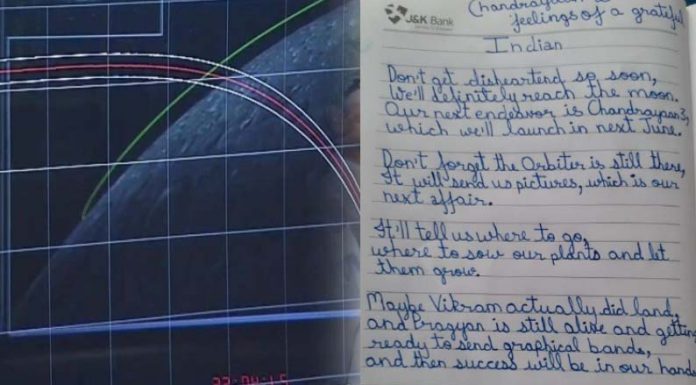 J&K Bank
Chandrayaan
feelings of a grateful
Indian
Don't get disheartend so soon,
We'll definitely reach the moon.
Our next endeavor is Chandrayaan 3,
which we'll launch in next June.
Don't forget the Orbiter is still there,
It will send us pictures, which is our
next affair.
It'll tell us where to go,
where to sow our plants and let
them grow.
Maybe Vikram actually did land,
and Pragyan is still alive and getting
ready to send graphical bands,
and then success will be in our hand